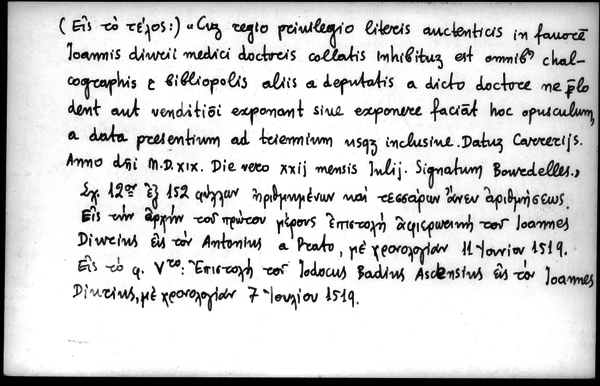 (Εἰς τὸ τέλος:) «Cuʒ regio priuilegio literis auctenticis in fauorē
Ioannis diureii medici doctoris collatis inhibituʒ est omnibꝰ chal-
cographis & bibliopolis aliis a deputatis a dicto doctore ne p̄lo
dent aut venditiōi exponant siue exponere faciāt hoc opusculum,
a data presentium ad triennium usqʒ inclusiue. Datuʒ Carrerijs.
Anno dn̄i M.D.XIX. Die vero xxij mensis Iulij. Signatum Bourdelles.»
Σχ. 12ον ἐξ 152 φύλλων ἠριθμημένων καὶ τεσσάρων ἄνευ ἀριθμήσεως.
Εἰς τὴν ἀρχὴν τοῦ πρώτου μέρους ἐπιστολὴ ἀφιερωτικὴ τοῦ Ioannes
Diureius εἰς τὸν Antonius a Prato, μὲ χρονολογίαν 11 Ἰουνίου 1519.
Εἰς τὸ φ. Vᵗᵒ: Ἐπιστολὴ τοῦ Iodocus Badius Ascensius εἰς τὸν Ioannes
Diureius, μὲ χρονολογίαν 7 Ἰουλίου 1519.